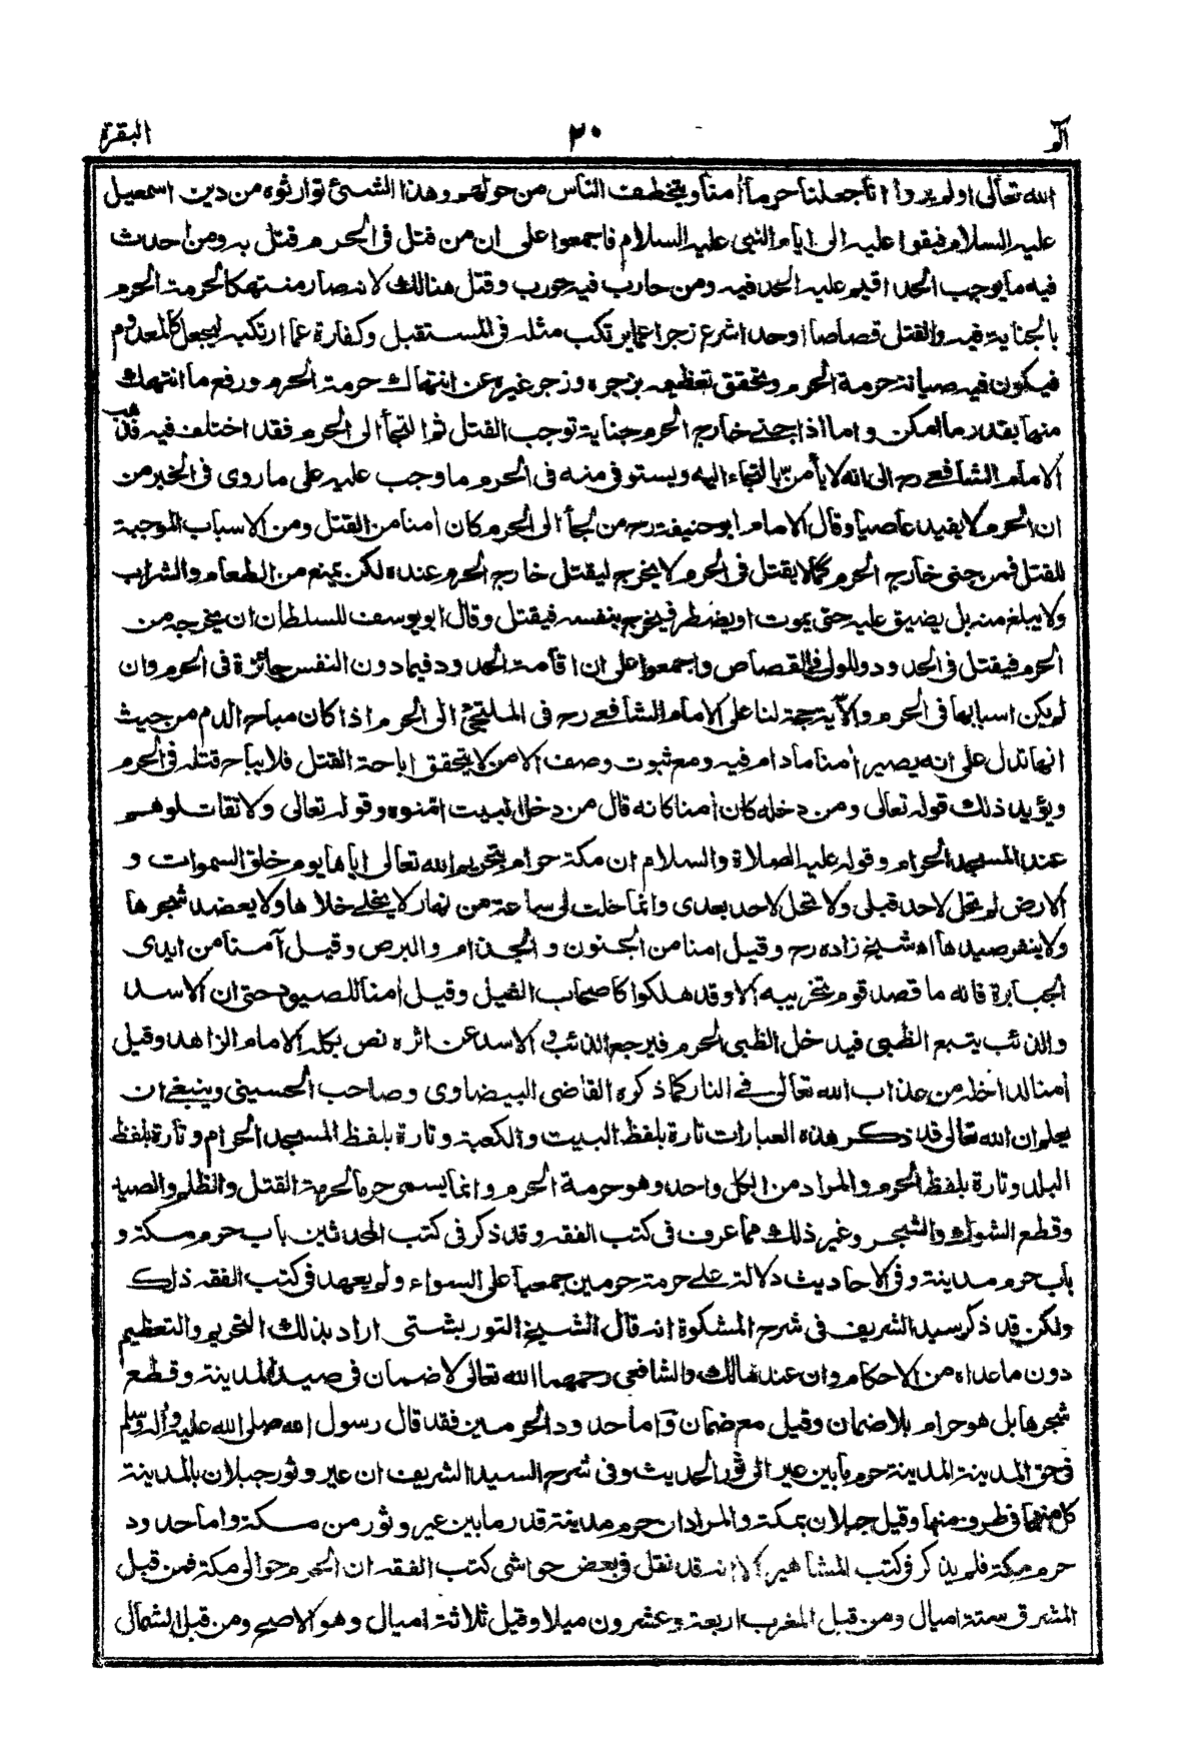 الم
٢٠
البقرة
الله تعالى اولم يروا انا جعلنا حرما أمنا ويتخطف الناس من حولهم وهذا الشئ توارثوه من دين اسمعيل
عليه السلام فبقوا عليه الى ايام النبى عليه السلام فاجمعوا على ان من قتل فى الحرم قتل به ومن احدث
فيه ما يوجب الحد اقيم عليه الحد فيه ومن حارب فيه حورب وقتل هنالك لانه صار منتهكا لحرمة الحرم
بالجناية فيه والقتل قصاصا او حدا شرع زجرا عما يرتكب مثله فى المستقبل وكفارة عما ارتكبه ليجعل كالمعدوم
فيكون فيه صيانة حرمة الحرم وتحقق تعظيمه بزجره وزجر غيره عن انتهاك حرمة الحرم ورفع ما انتهك
منها بقدر ما امكن واما اذا جنى خارج الحرم جناية توجب القتل ثم التجأ الى الحرم فقد اختلف فيه فذهب
الامام الشافعى رح الى انه لا يأمن بالتجاء اليه ويستوفى منه فى الحرم ما وجب عليه على ما روى فى الخبر من
ان الحرم لا يفيد عاصيا وقال الامام ابو حنيفة رح من لجأ الى الحرم كان امنا من القتل ومن الاسباب الموجبة
للقتل فمن جنى خارج الحرم كما لا يقتل فى الحرم لا يخرج ليقتل خارج الحرم عنده لكن يمنع من الطعام والشراب
ولا يبلغ منه بل يضيق عليه حتى يموت او يضطر فيخرج بنفسه فيقتل وقال ابو يوسف للسلطان ان يخرجه من
الحرم فيقتل فى الحدود وللولى فى القصاص واجمعوا على ان اقامة الحدود فيما دون النفس جائزة فى الحرم وان
لم يكن اسبابها فى الحرم والآية حجة لنا على الامام الشافعى رح فى الملتجئ الى الحرم اذا كان مباح الدم من حيث
انها تدل على انه يصير أمنا ما دام فيه ومع ثبوت وصف الامن لا يتحقق اباحة القتل فلا يباح قتله فى الحرم
ويؤيد ذلك قوله تعالى ومن دخله كان امنا كانه قال من دخل البيت امنوه وقوله تعالى ولا تقاتلوهم
عند المسجد الحرام وقوله عليه الصلاة والسلام ان مكة حرام بتحريم الله تعالى اياها يوم خلق السموات و
الارض لم تحل لاحد قبلى ولا تحل لاحد بعدى وانما حلت لى ساعة من نهار لا يختلى خلاها ولا يعضد شجرها
ولا ينفر صيدها اه شيخ زاده رح وقيل امنا من الجنون و الجذام والبرص وقيل آمنا من ايدى
الجبابرة فانه ما قصد قوم تخريبه الا وقد هلكوا كاصحاب الفيل وقيل امنا للصيود حتى ان الاسد
والذئب يتبع الظبى فيدخل الظبى الحرم فيرجع الذئب و الاسد عن اثره نص بكله الامام الزاهد وقيل
امنا لداخله من عذاب الله تعالى فى النار كما ذكره القاضى البيضاوى وصاحب الحسينى وينبغى ان
يعلم ان الله تعالى قد ذكر هذه العبارات تارة بلفظ البيت والكعبة وتارة بلفظ المسجد الحرام وتارة بلفظ
البلد وتارة بلفظ الحرم والمراد من الكل واحد وهو حرمة الحرم وانما يسمى حرما لحرمة القتل والظلم والصيد
وقطع الشوك والشجر وغير ذلك مما عرف فى كتب الفقه وقد ذكر فى كتب المحدثين باب حرم مكة و
باب حرم مدينة وفى الاحاديث دلالة على حرمة حرمين جمعيا على السواء ولم يعهد فى كتب الفقه ذلك
ولكن قد ذكر سيد الشريف فى شرح المشكوة انه قال الشيخ التوربشتى اراد بذلك التحريم والتعظيم
دون ما عداه من الاحكام وان عند مالك والشافعى رحمهما الله تعالى لا ضمان فى صيد المدينة وقطع
شجرها بل هو حرام بلا ضمان وقيل مع ضمان وَاما حدود الحرمين فقد قال رسول الله صلى الله عليه وآله وسلم
فى حق المدينة المدينة حرم ما بين عير الى ثور الحديث وفى شرح السيد الشريف ان عير وثور جبلان بالمدينة
كل منهما فى طرف منها وقيل جبلان بمكة والمراد ان حرم مدينة قدر ما بين عير وثور من مكة واما حدود
حرم مكة فلم يذكر فى كتب المشاهير الا انه قد نقل فى بعض حواشى كتب الفقه ان الحرم حوالى مكة فمن قبل
المشرق ستة اميال ومن قبل المغرب اربعة وعشرون ميلا وقيل ثلاثة اميال وهو الاصح ومن قبل الشمال